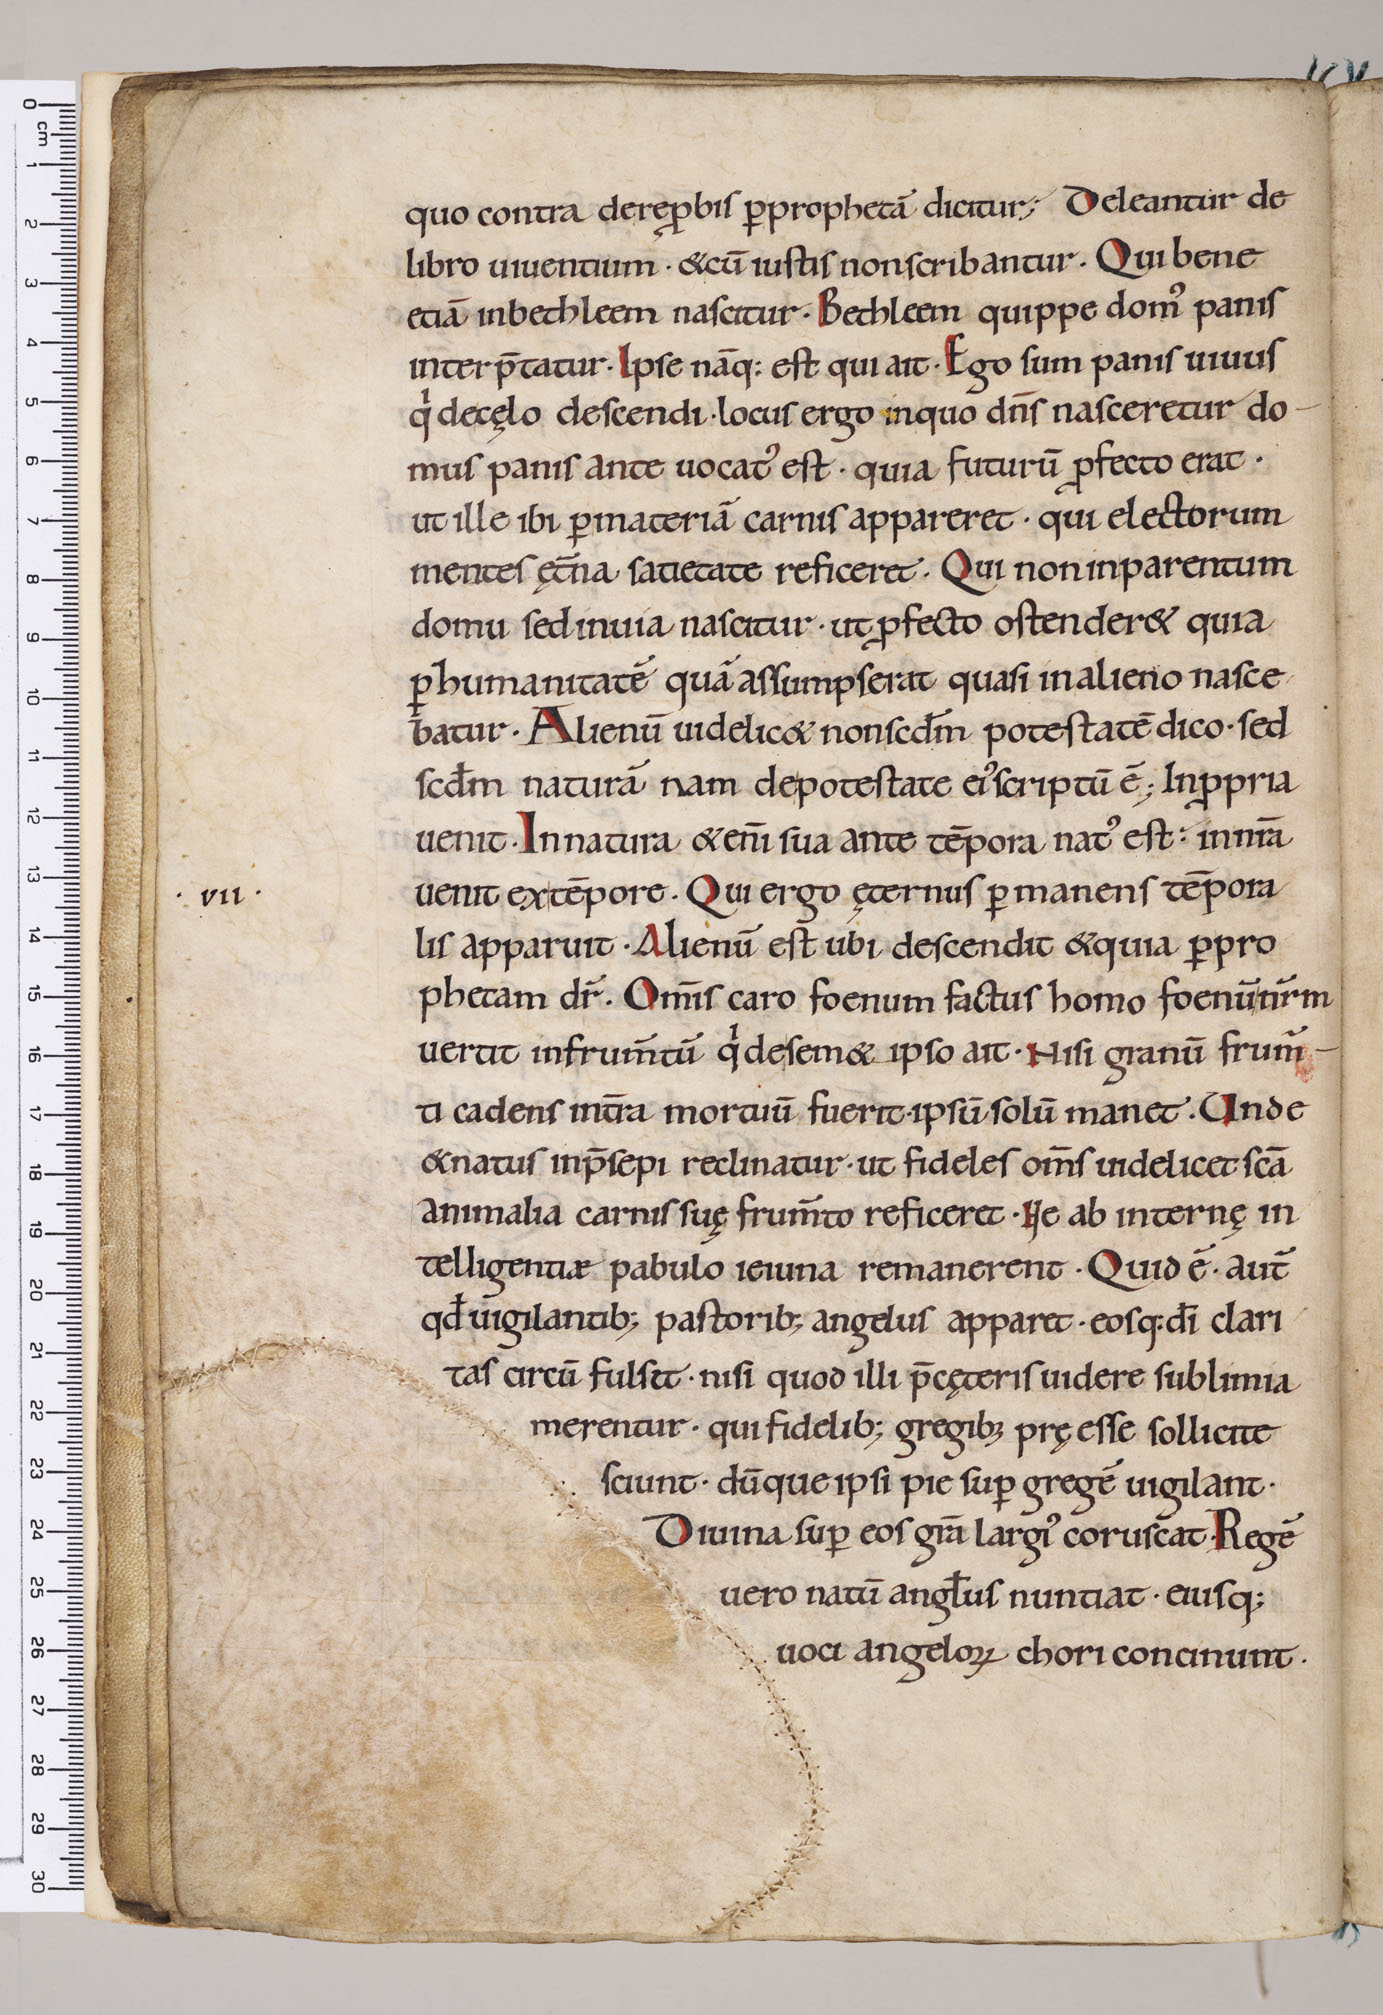 quo contra derep̱bis ꝑprophetā dicitur; Deleantur de
libro uiuentium · &cū iustis nonscribantur. Qui bene
etiā inbethleem nascitur. Bethleem quippe domꝰ panis
interp̄tatur. Ipse nāq: est qui ait. Ego sum panis uiuus
qͥ decęlo descendi · locus ergo inquo dn̄s nasceretur do-
mus panis ante uocatꝰ est · quia futurū ꝓfecto erat ·
ut ille ibi ꝑmateriā carnis appareret · qui electorum
mentes ęt̄na satietate reficeret. Qui noninparentum
domu sedinuia nascitur · ut ꝓfecto ostender& quia
ꝑhumanitatē quā assumpserat quasi inalieno nasce
batur. Alienū uidelic& nonscd̄m potestatē dico · sed
scd̄m naturā nam depotestate eiꝰscriptū ē; Inꝓpria
uenit. Innatura &eni̅ sua ante tēpora natꝰ est: innr̄a
uenit extēpore. Qui ergo ęternus ꝑmanens tēpora
· VII ·
lis apparuit. Alienū est ubi descendit &quia ꝑpro
phetam dr̄. Om̄is caro foenum factus homo foenū nr̄m
uertit infrum̄tū qͥ desem& ipso ait. Nisi granū frum̄-
ti cadens int̄ra mortuū fuerit · ipsū solū manet. Unde
&natus inp̄sepi reclinatur · ut fideles om̄s uidelicet scā
animalia carnis suę frum̄to reficeret. Ne ab internę in
telligentiæ pabulo ieiuna remanerent. Quid ē · aut̄
qd̄ uigilantib; pastorib; angelus apparet · eosq: dī clari
tas circū fulsit · nisi quod illi p̄cęteris uidere sublimia
merentur · qui fidelib; gregib; pręesse sollicite
sciunt · dūque ipsi pie suꝑ gregē uigilant ·
Diuina suꝑ eos gr̄a largiꝰ coruscat. Regē
uero natū angl̄us nuntiat · eiusq;
uoci angeloꝝ chori concinunt ·